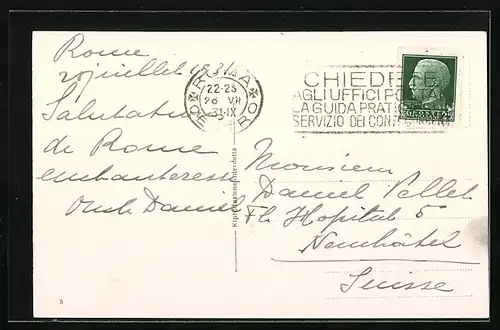 Rome
juillet 1931
Salutations
de Rome
enchanteresse
Oncle Daniel
ROMA
22-23
VII
31-IX
CHIEDETE
AGLI UFFICI POSTALI
LA GUIDA PRATICA
SERVIZIO DEI CONTI CORRENTI
Riproduzione interdetta
Monsieur
Daniel Pellet
Fb Hôpital 5
Neuchâtel
Suisse